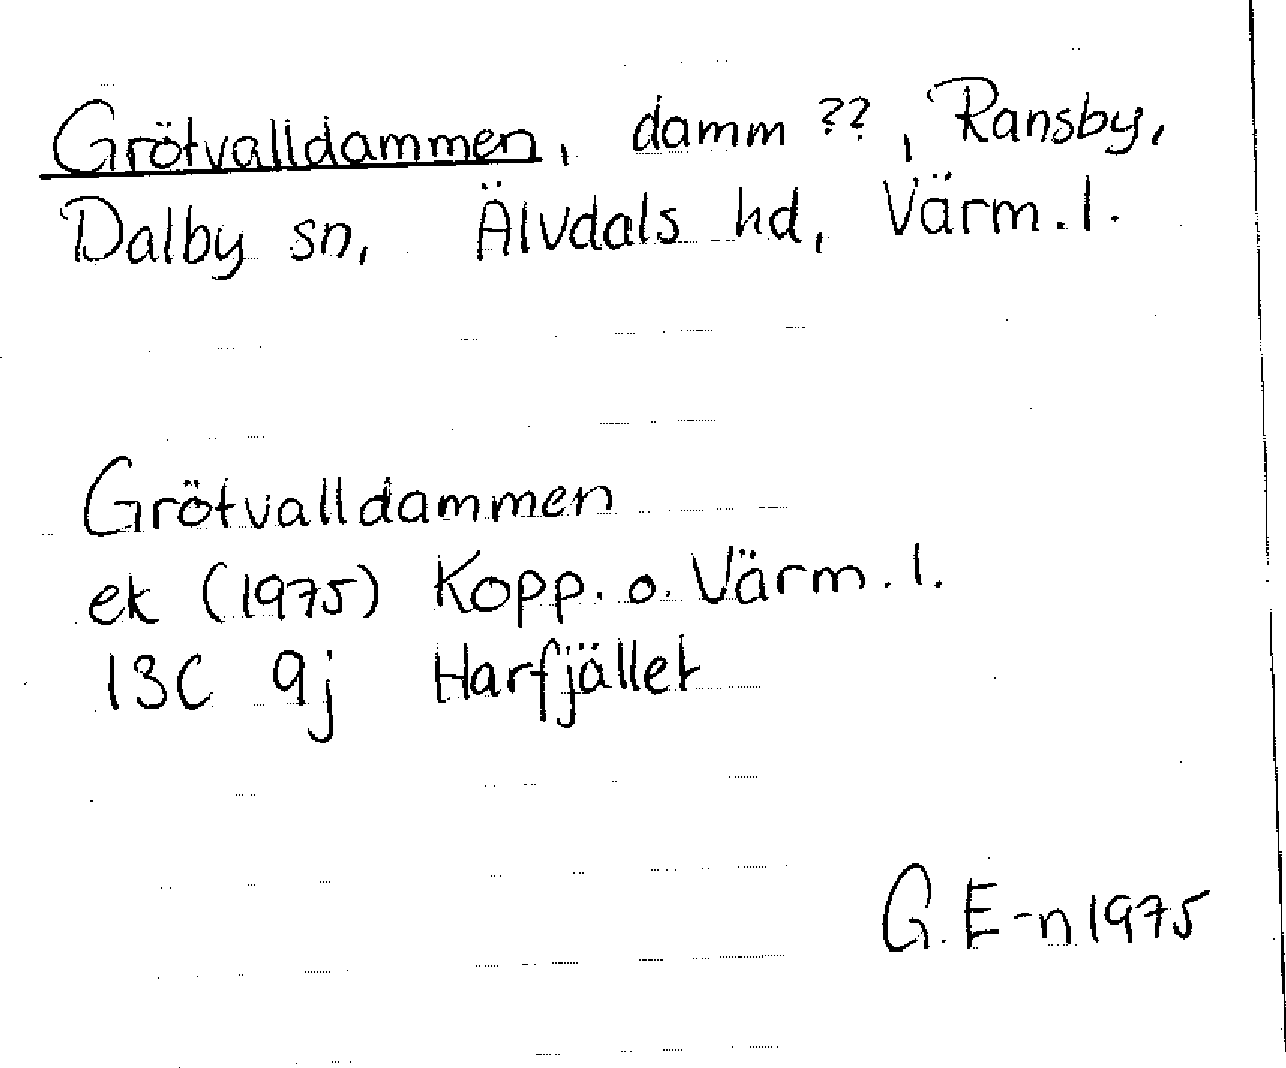 Grötvalldammen, damm ??, Ransby,
Dalby sn, Älvdals hd, Värm. l.
Grötvalldammen
ek (1975) Kopp. o. Värm. l.
13C 9j Harfjället
G. E-n 1975